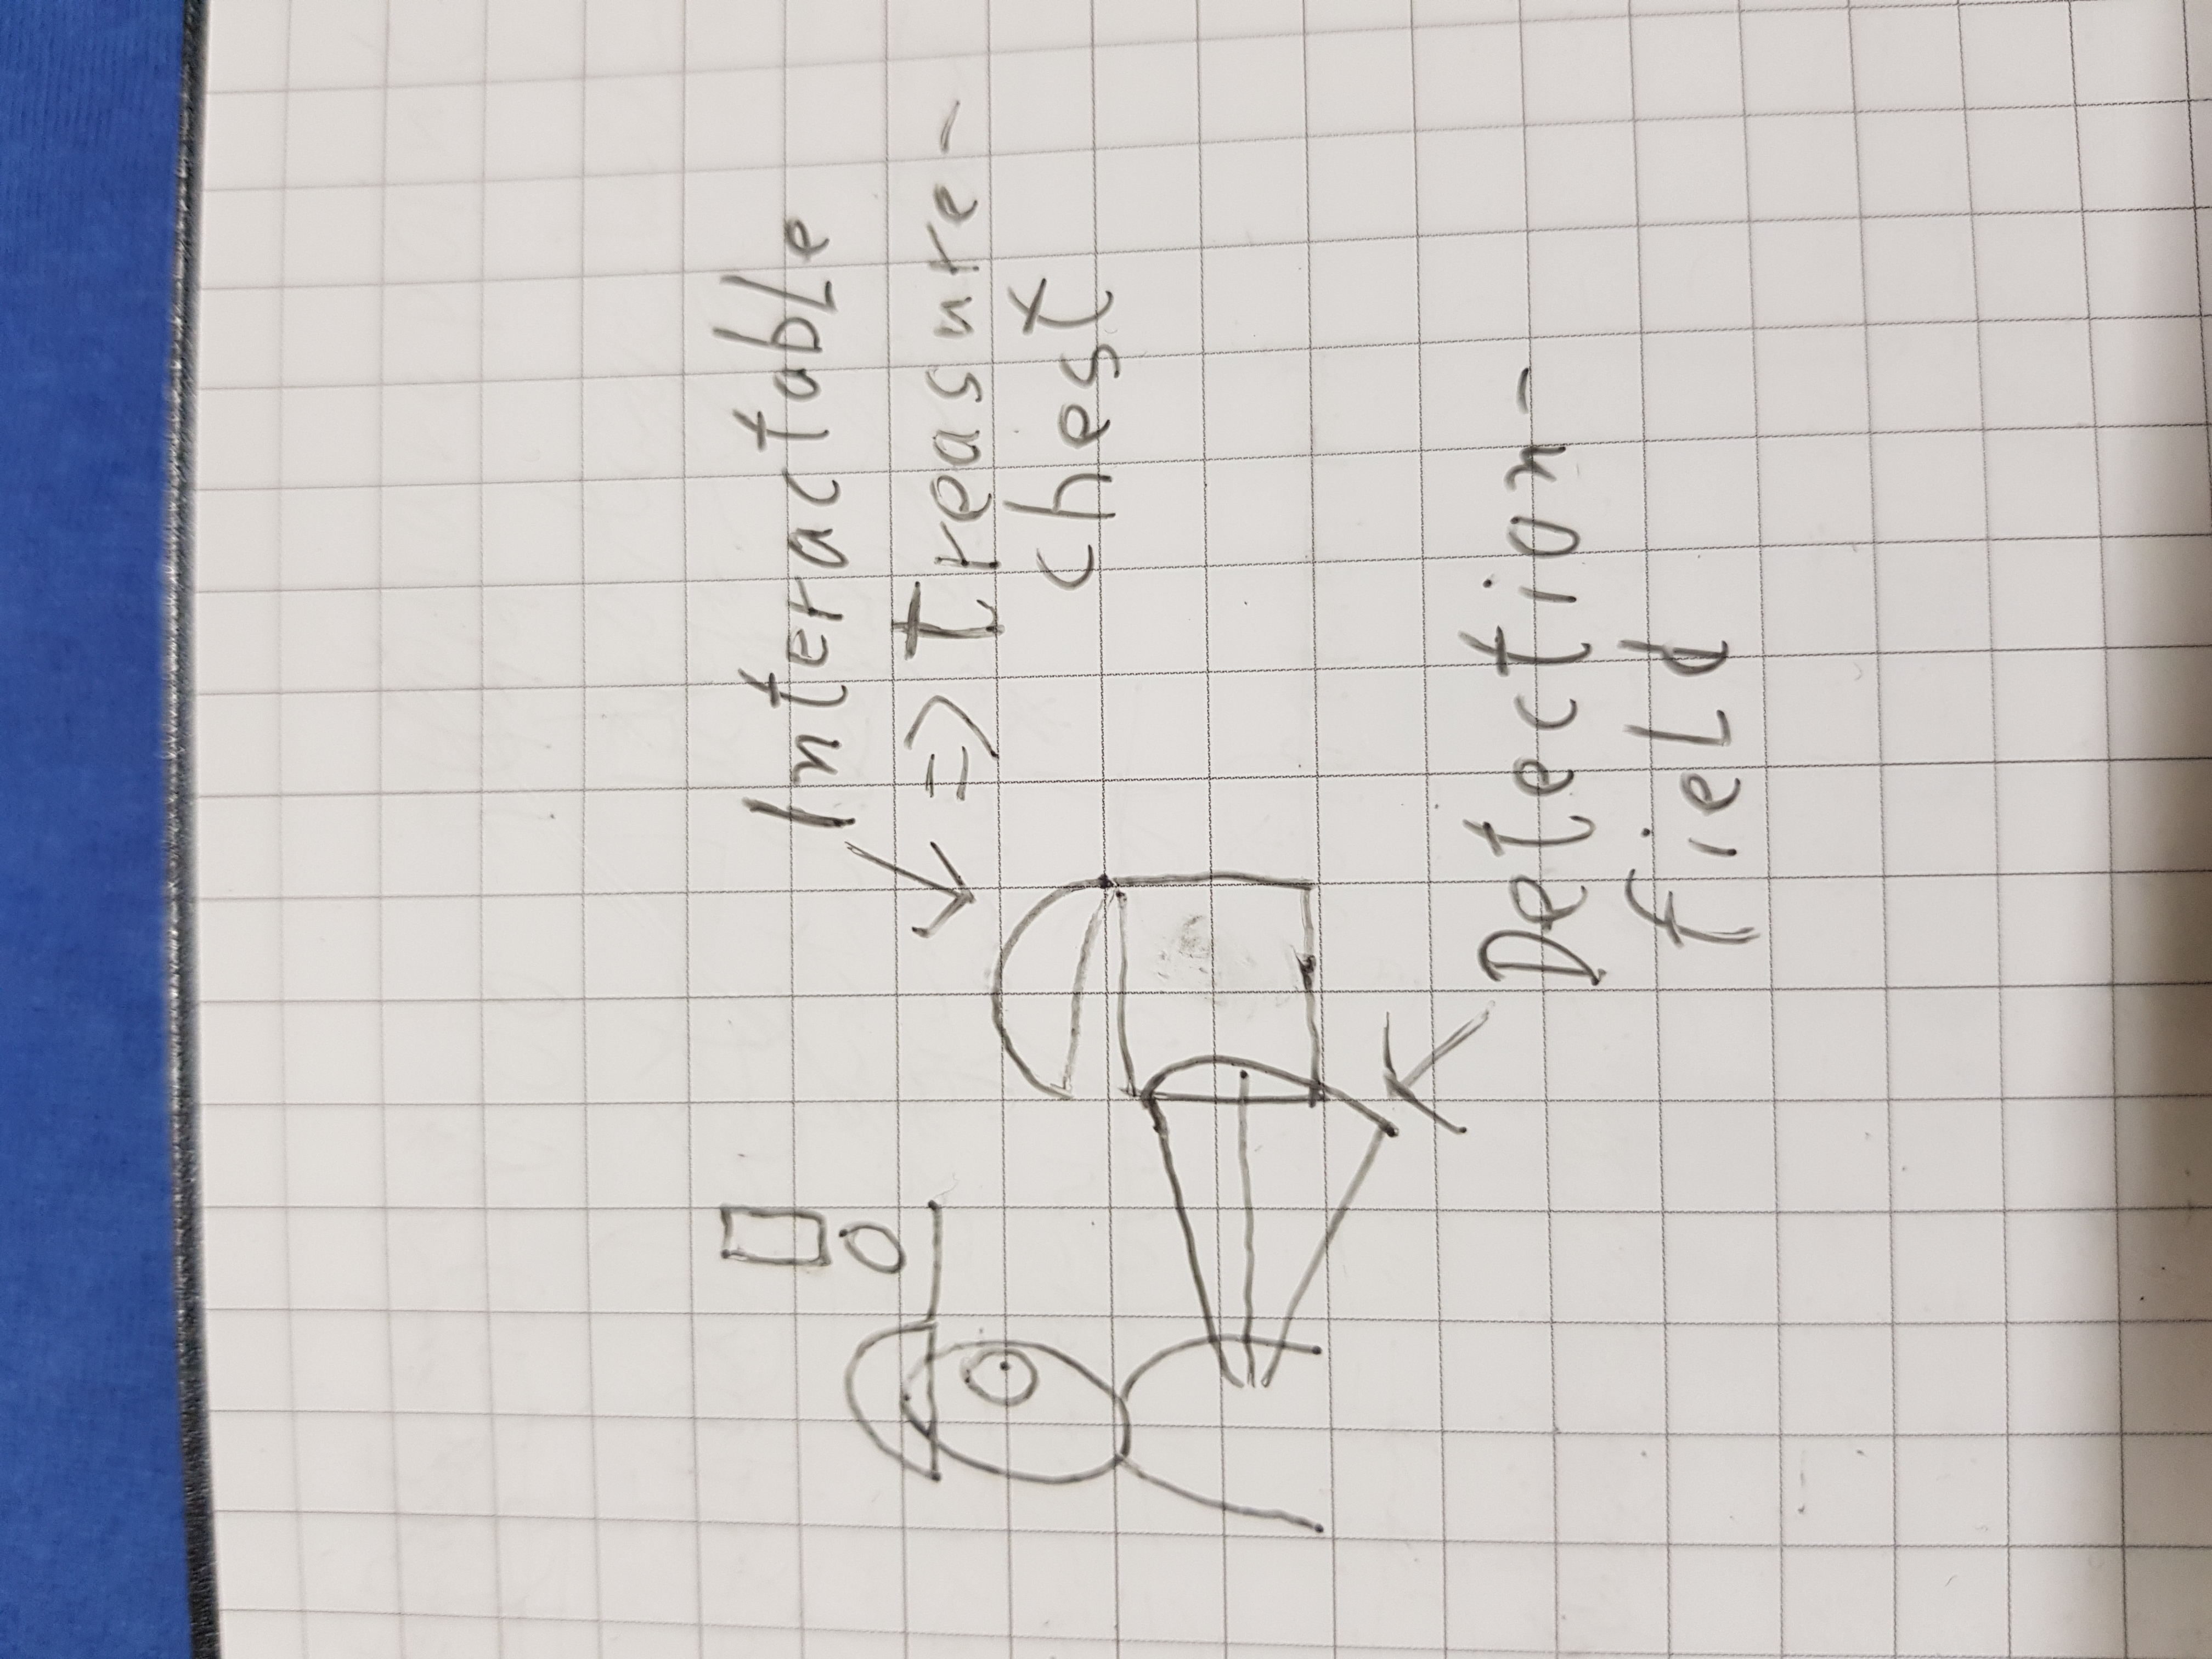 Interactable
=> Treasure-
chest
Detection-
field